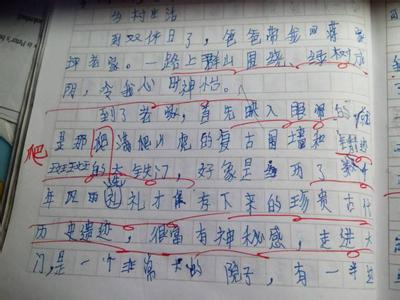 乡村生活
到双休日了，爸爸带我回蒋家
坪老家。一路上群山围绕，绿树成
阴，令我心旷神怡。
到了老家，首先映入眼的
是那 满爬山虎的复古围墙和锈迹
班班的大铁门，好象是经历了数
年 的 礼才保存下来的珍贵古代
历史遗迹，很富有神秘感，走进大
门，是一个非常大的院子，有一半
爬